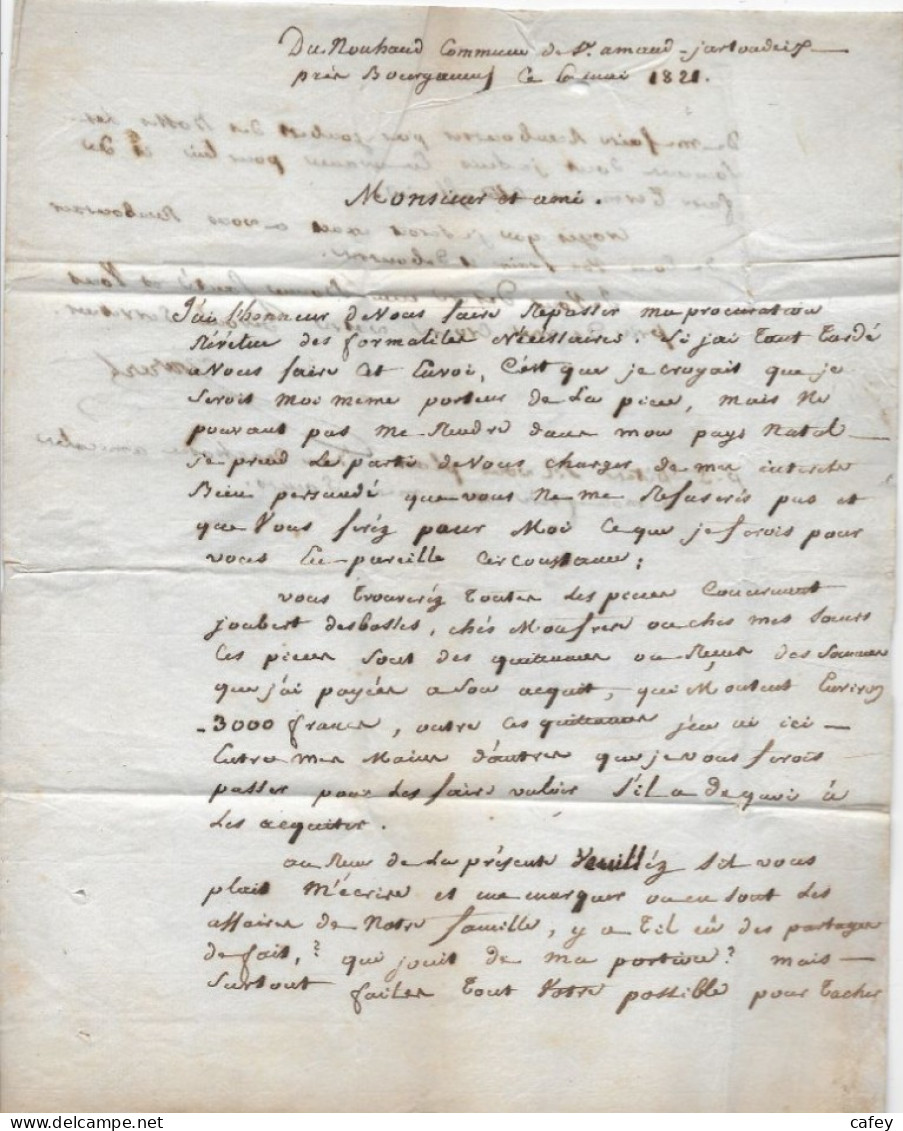 Du Nouhaud Commune de St. amand-jartoudeix
près Bourganeuf Ce 6 mai 1821.
Monsieur et ami.
J'ai l'honneur de Vous faire Repasser ma procuration
Révétue des formalités Nécessaires. Si j'ai tout tardé
a Vous faire Cet Envoi, C'est que je croyait que je
serois moi meme porteur de la piece, mais Ne
pouvant pas me Rendre dans mon pays Natal
je prend le parti de Vous charger de mes interets
Bien persuadé que vous Ne me Refuserés pas et
que Vous feréz pour Moi Ce que je ferois pour
vous En pareille Circonstance;
vous trouveréz toutes les pieces Concernant
joubert desbosses, chés Mon frere ou chés mes sœurs
Ces pieces sont des quittances ou Reçus des sommes
que j'ai payées a Son acquit, qui Montent Environ
3000 francs, outre Ces quittances j'en ai ici
Entre mes Mains d'autres que je vous ferois
passer pour les faire valoir s'il a de quoi à
les acquiter.
au Reçu de la présente Veuilléz s'il vous
plait M'écrire et me marquer ou en sont les
affaires de Notre famille, y a til eû des partages
de fait,? qui jouit de ma portion? mais
surtout faites tout Votre possible pour tacher
cafey